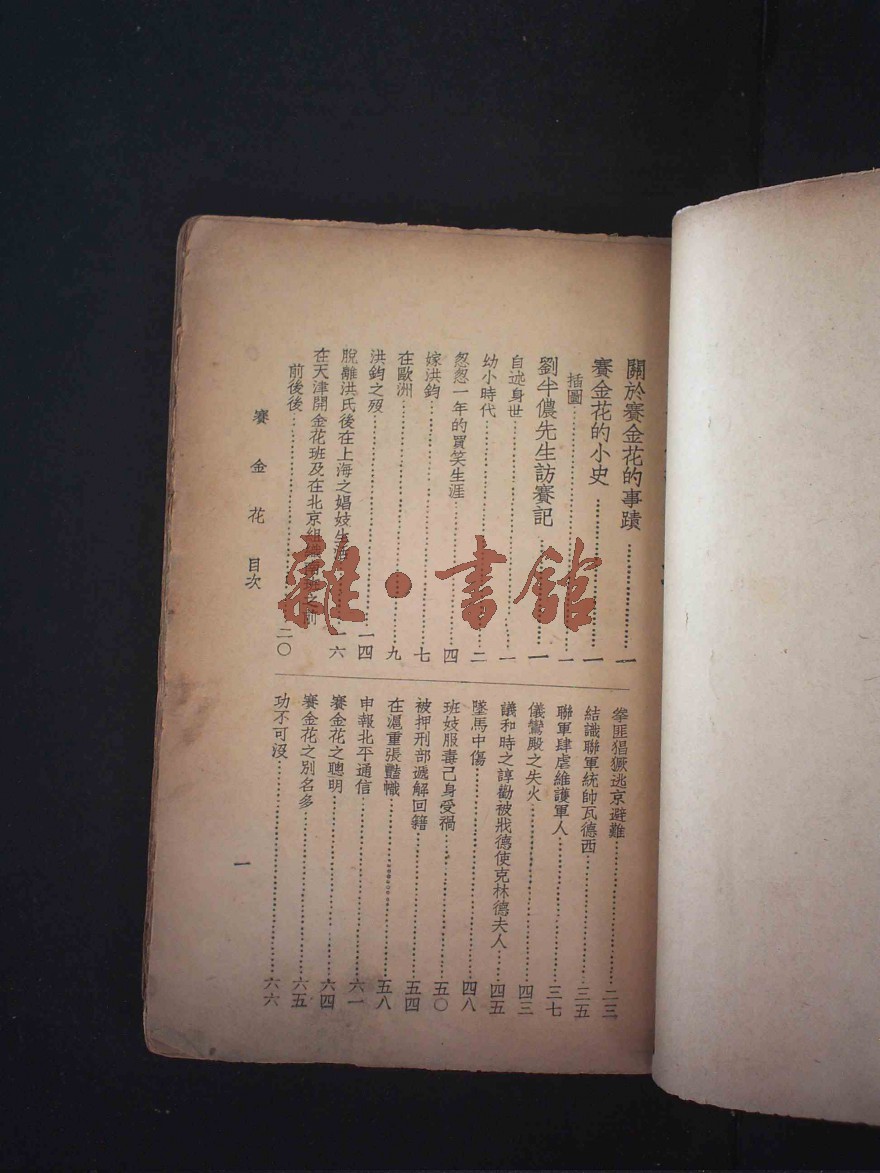 關於賽金花的事蹟…………一
賽金花的小史…………一
插圖…………一
劉半儂先生訪賽記…………一
自述身世…………一
幼小時代…………二
怱怱一年的買笑生涯…………四
嫁洪鈞…………七
在歐洲…………九
洪鈞之歿…………一四
脫離洪氏後在上海之娼妓生涯…一六
在天津開金花班及在北京組織 之前
前後後…………二〇
拳匪猖獗逃京避難…………二三
結識聯軍統帥瓦德西…………三五
聯軍肆虐維護軍人…………三七
儀鸞殿之失火…………四三
議和時之諄勸被戕德使克林德夫人…四五
墜馬中傷…………四八
班妓服毒己身受禍…………五〇
被押刑部遞解回籍…………五四
在滬重張豔幟…………五八
申報北平通信…………六一
賽金花之聰明…………六四
賽金花之別名多…………六五
功不可沒…………六六
賽金花 目次
一
雜·書館